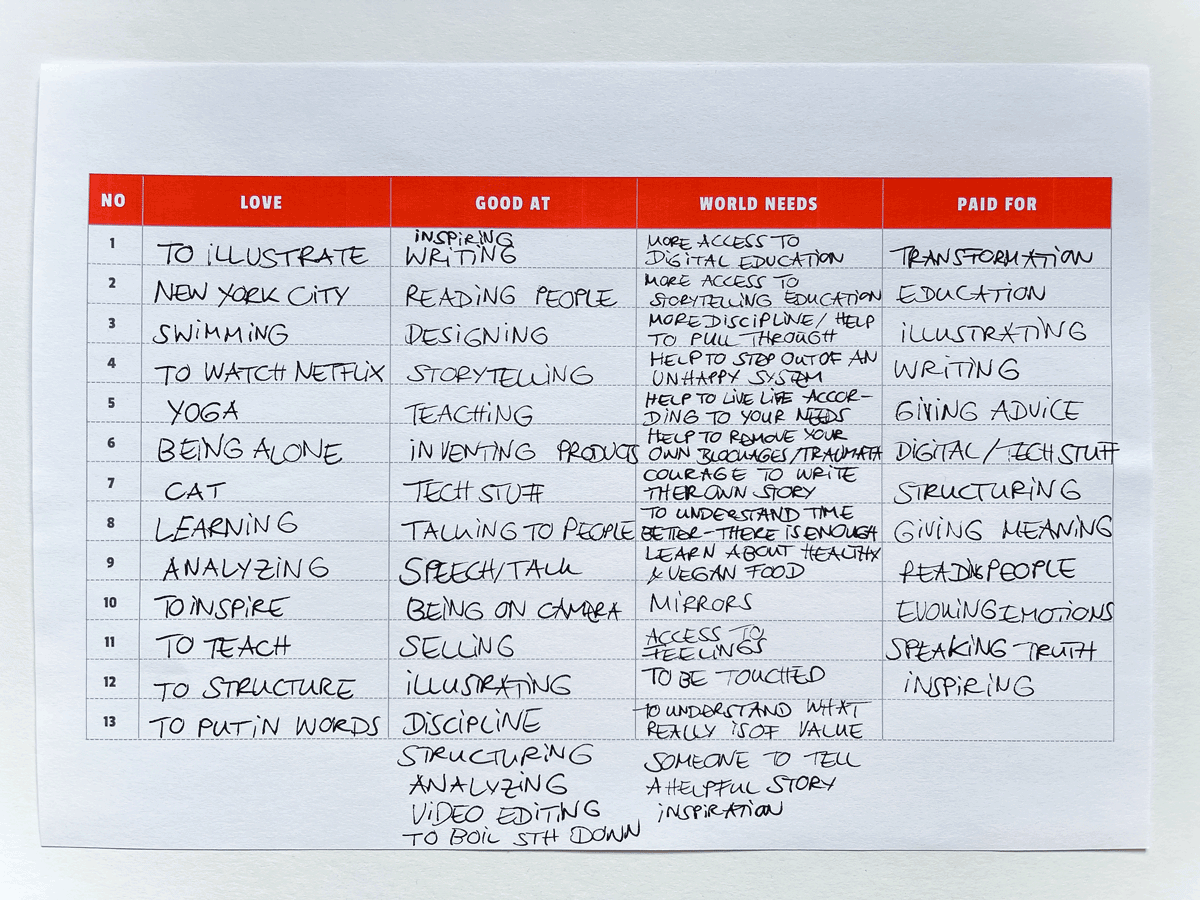 NO LOVE GOOD AT WORLD NEEDS PAID FOR
1 TO ILLUSTRATE INSPIRING WRITING MORE ACCESS TO DIGITAL EDUCATION TRANSFORMATION
2 NEW YORK CITY READING PEOPLE MORE ACCESS TO STORYTELLING EDUCATION EDUCATION
3 SWIMMING DESIGNING MORE DISCIPLINE/ HELP TO PULL THROUGH ILLUSTRATING
4 TO WATCH NETFLIX STORYTELLING HELP TO STEP OUT OF AN UNHAPPY SYSTEM WRITING
5 YOGA TEACHING HELP TO LIVE LIFE ACCOR- DING TO YOUR NEEDS GIVING ADVICE
6 BEING ALONE INVENTING PRODUCTS HELP TO REMOVE YOUR OWN BLOCKAGES/TRAUMATA DIGITAL/TECH STUFF
7 CAT TECH STUFF COURAGE TO WRITE THER OWN STORY STRUCTURING
8 LEARNING TALKING TO PEOPLE TO UNDERSTAND TIME BETTER - THERE IS ENOUGH GIVING MEANING
9 ANALYZING SPEECH/TALK LEARN ABOUT HEALTHY & VEGAN FOOD READING PEOPLE
10 TO INSPIRE BEING ON CAMERA MIRRORS EVOKING EMOTIONS
11 TO TEACH SELLING ACCESS TO FEELINGS SPEAKING TRUTH
12 TO STRUCTURE ILLUSTRATING TO BE TOUCHED INSPIRING
13 TO PUT IN WORDS DISCIPLINE TO UNDERSTAND WHAT REALLY IS OF VALUE
STRUCTURING SOMEONE TO TELL
ANALYZING A HELPFUL STORY
VIDEO EDITING INSPIRATION
TO BOIL STH DOWN